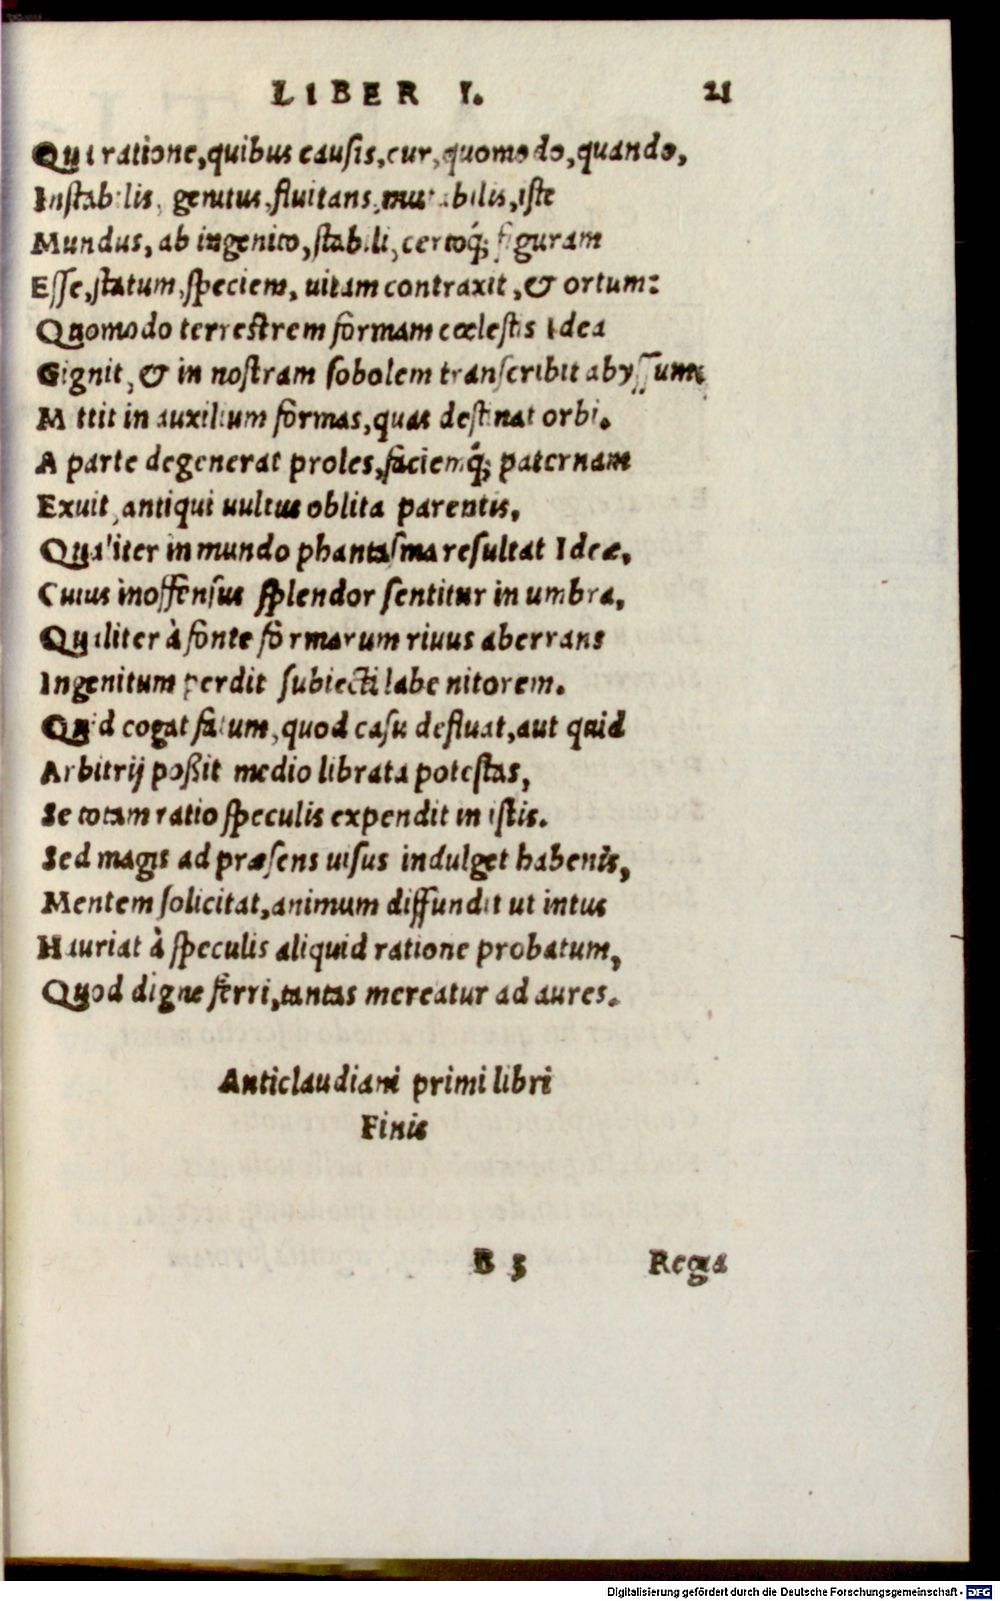 LIBER I. 21
Qua ratione, quibus causis, cur, quomodo, quando,
Instabilis, genitus, fluitans, mutabilis, iste
Mundus, ab ingenito, stabili, certoq́; figuram
Esse, statum, speciem, uitam contraxit, & ortum:
Quomodo terrestrem formam cœlestis Idea
Gignit, & in nostram sobolem transcribit abyssum:
Mittit in auxilium formas, quas destinat orbi.
A parte degenerat proles, faciemq́; paternam
Exuit, antiqui uultus oblita parentis,
Qualiter in mundo phantasma resultat Ideæ,
Cuius inoffensus splendor sentitur in umbra,
Qualiter à fonte formarum riuus aberrans
Ingenitum perdit subiecti labe nitorem.
Quid cogat fatum, quod casu defluat, aut quid
Arbitrij poßit medio librata potestas,
Se totam ratio speculis expendit in istis.
Sed magis ad præsens uisus indulget habenis,
Mentem solicitat, animum diffundit ut intus
Hauriat à speculis aliquid ratione probatum,
Quod digne ferri, tantas mereatur ad aures.
Anticlaudiani primi libri
Finis
B 3 Rega
Digitalisierung gefördert durch die Deutsche Forschungsgemeinschaft - DFG